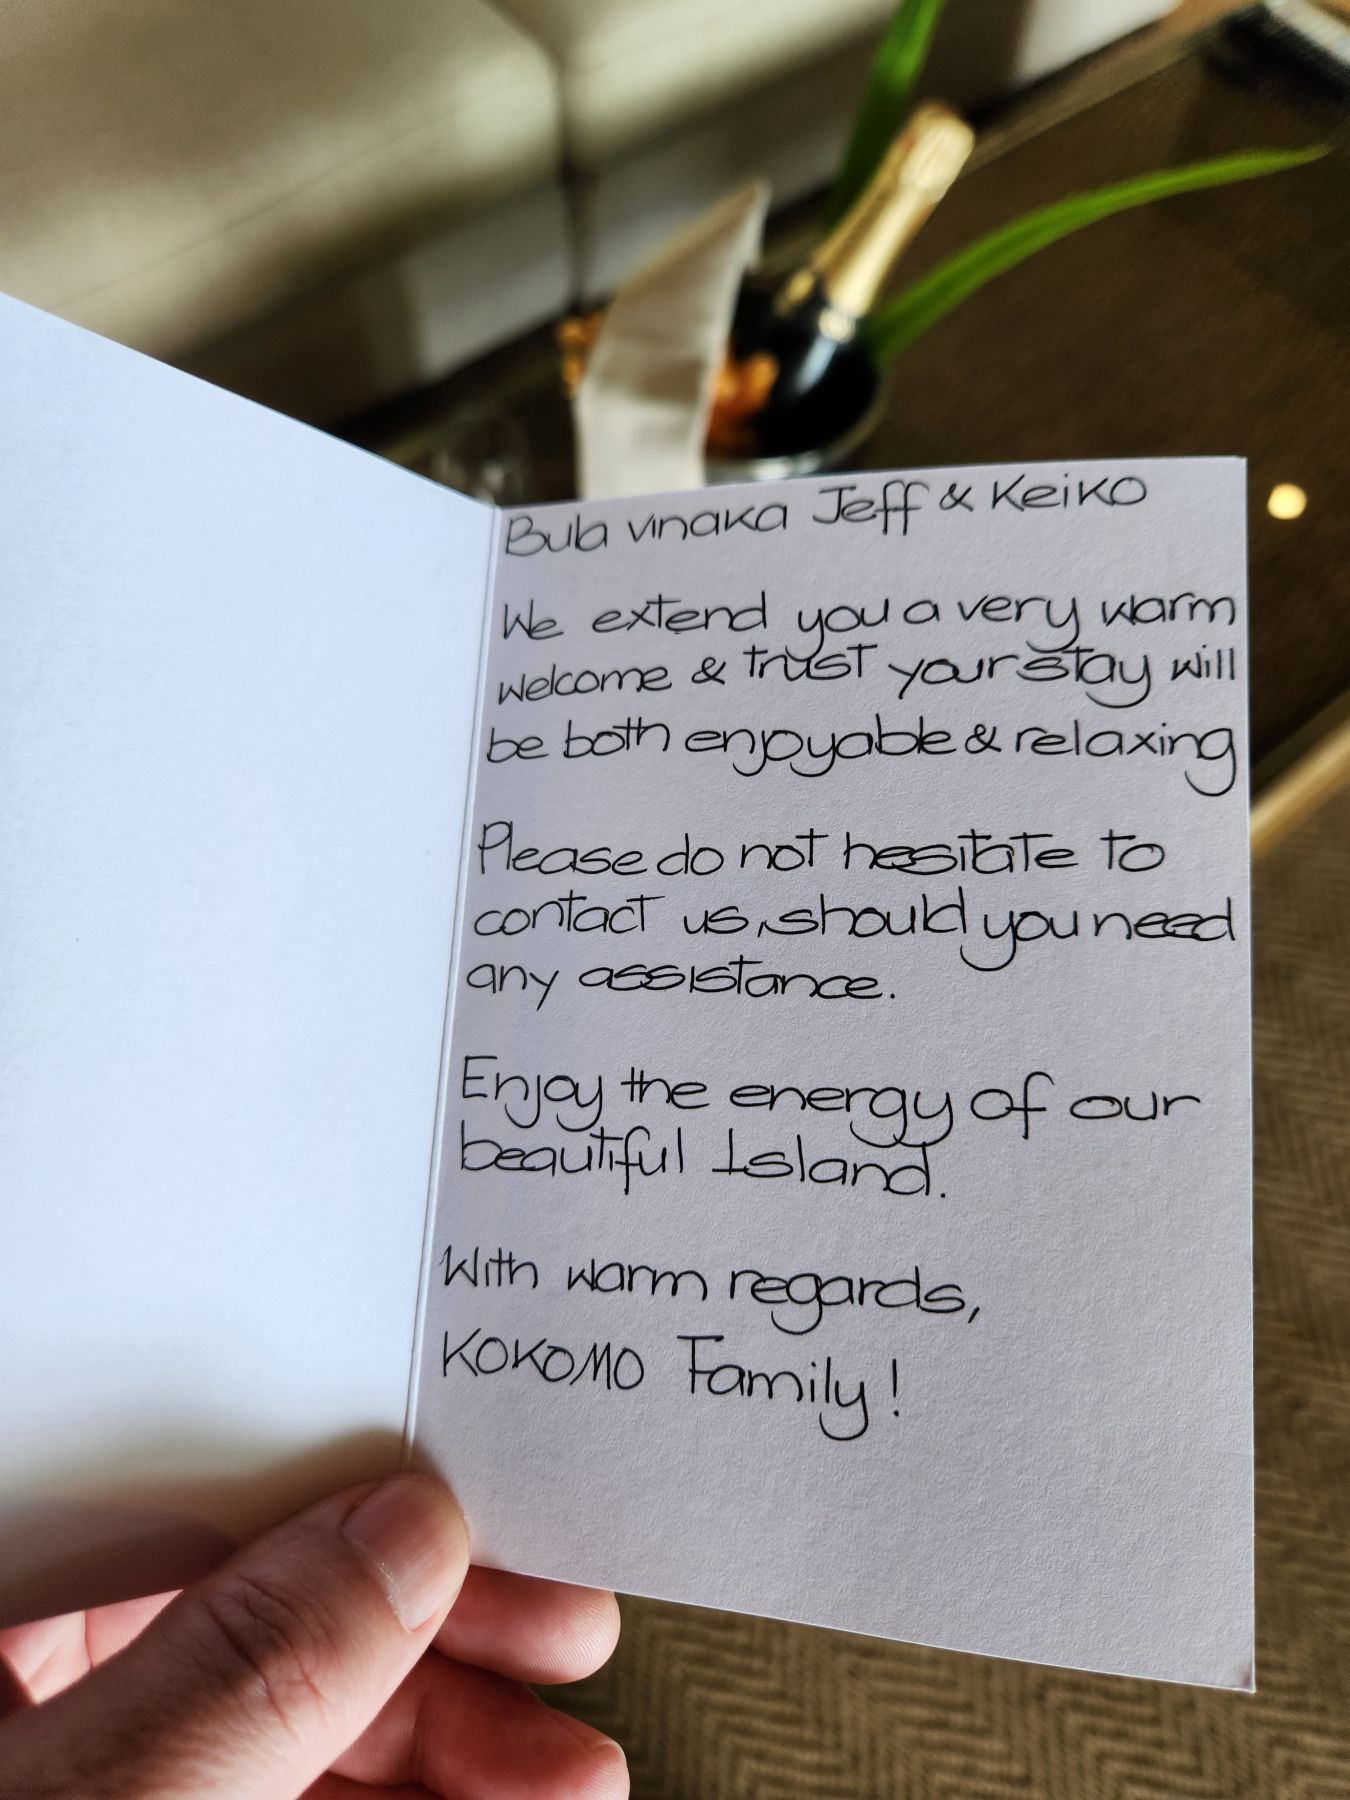 Bula vinaka Jeff & Keiko
We extend you a very warm
welcome & trust your stay will
be both enjoyable & relaxing
Please do not hesitate to
contact us, should you need
any assistance.
Enjoy the energy of our
beautiful Island.
With warm regards,
KOKOMO Family!